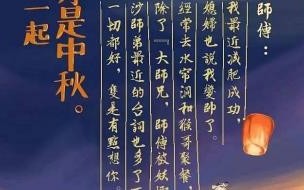 師傅：
我最近減肥成功，
媳婦也說我變帥了。
經常去水帘洞和猴哥聚餐，
除了『大師兄，師傅被妖
沙師弟最近的台詞也多了一
一切都好，隻是有點想你。
是中秋。
一起